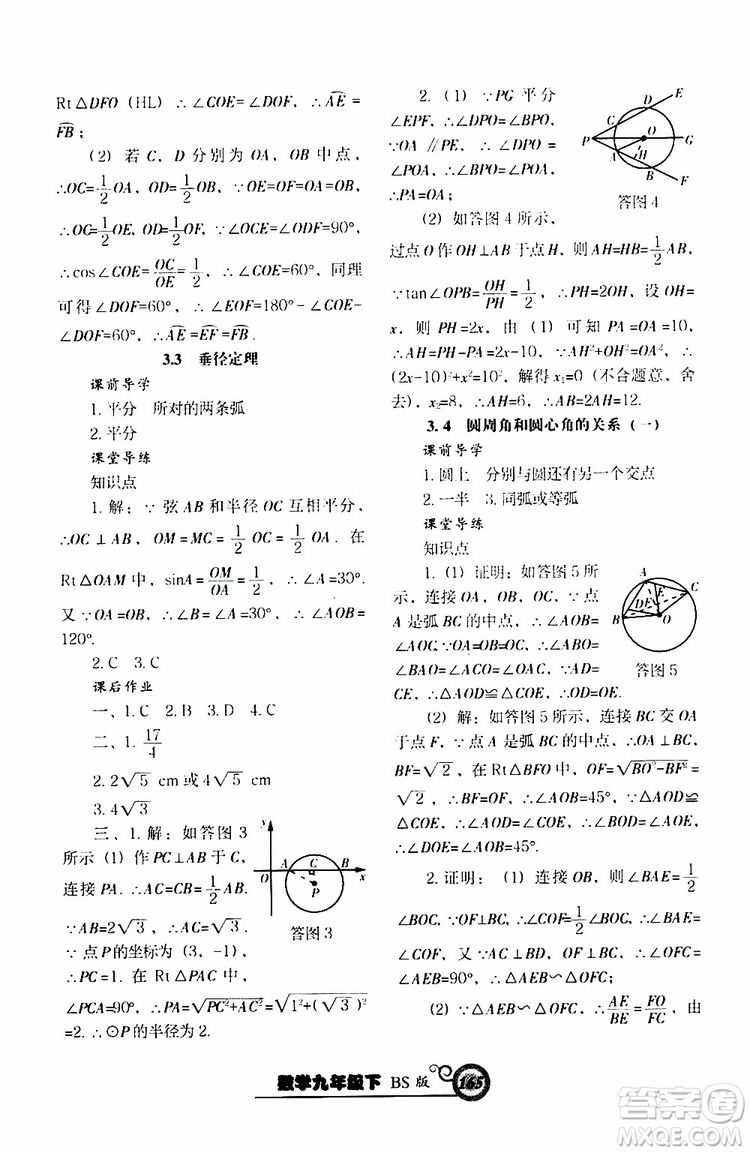 Rt△DFO（HL）∴∠COE=∠DOF，∴A͡E=
F͡B；
(2) 若 C，D 分别为 OA，OB 中点，
∴OC=1/2OA，OD=1/2OB，∵OE=OF=OA，
∴OC=1/2OE，OD=1/2OF，∵∠OCE=∠ODF=90°，
∴cos∠COE=OC/OE=1/2，∴∠COE=60°，同理
可得∠DOF=60°，∴∠EOF=180°-∠COE-
∠DOF=60°，∴A͡E=E͡F=F͡B.
3.3 垂径定理
课前导学
1.平分 所对的两条弧
2.平分
课堂导练
知识点
1.解：∵弦 AB 和半径 OC 互相平分，
∴OC⊥AB，OM=MC=1/2 OC=1/2 OA. 在
Rt△OAM 中，sinA=OM/OA=1/2，∴∠A=30°.
又∵OA=OB，∴∠B=∠A=30°，∴∠AOB=
120°.
2.C 3.C
课后作业
一、1.C 2.B 3.D 4.C
二、1.17/4
2.2√5 cm 或 4√5 cm
3.4√5
三、1.解：如答图 3
所示（1）作 PC⊥AB 于 C，
连接 PA. ∴AC=CB=1/2AB，
∵AB=2√3，∴AC=√3.
∵点P的坐标为（3，-1），
∴PC=1. 在 Rt△PAC 中，
∠PCA=90°，∴PA=√PC²+AC²=√1²+(√3)²
=2. ∴⊙P 的半径为 2.
y
A
C
B
O
x
P
答图 3
2.（1）∵PG 平分
∠EPF，∴∠DPO=∠BPO，
∵OA∥PE，∴∠DPO=
∠POA，∴∠BPO=∠POA，
∴PA=OA；
(2) 如答图 4 所示，
过点 O 作 OH⊥AB 于点 H，则 AH=HB=1/2AB，
∵tan∠OPB=OH/PH=1/2，∴PH=2OH，设 OH=
x，则 PH=2x，由（1）可知 PA=OA=10，
∴AH=PH-PA=2x-10，∵AH²+OH²=OA²，∴
(2x-10)²+x²=10²，解得 x₁=0（不合题意，舍
去），x₂=8，∴AH=6，∴AB=2AH=12.
D
E
C
P
O
G
A
H
B
F
答图 4
3.4 圆周角和圆心角的关系（一）
课前导学
1.圆上 分别与圆还有另一个交点
2.一半 3.同弧或等弧
课堂导练
知识点
1.（1）证明：如答图 5 所
示，连接 OA，OB，OC，∵点
A 是弧 BC 的中点，∴∠AOB=
∠AOC，∵OA=OB，∴∠ABO=∠
BAO=∠ACO=∠OAC，∵AD=
CE，∴△AOD≌△COE，∴OE=OD.
(2) 解：如答图 5 所示，连接 BC 交 OA
于点 F，∵点 A 是弧 BC 的中点，∴OA⊥BC，
BF=√2，在 Rt△BFO 中，OF=√BO²-BF²=
√2，∴BF=OF，∴∠AOB=45°，∵△AOD≌
△COE，∴∠AOD=∠COE，∴∠DOE=∠AOC=
∠AOB=45°.
A
C
F
D
E
B
O
答图 5
2.证明：（1）连接 OB，则∠BAE=1/2
∠BOC，∵OF⊥BC，∴∠COF=1/2∠BOC，∴∠BAE=
∠COF，又∵AC⊥BD，OF⊥BC，∴∠OFC=
∠AEB=90°，∴△AEB∽△OFC；
(2) ∵△AEB∽△OFC，∴AE/BE=FO/FC，由
数学九年级下 BS版 165
答案圈
MXQE.COM